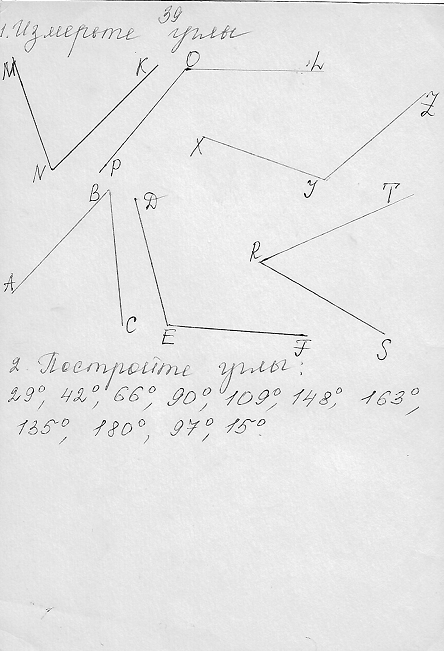 39
1. Измерьте углы
M K O L
X Z
N P Y
B D T
R
A
C E F S
2. Постройте углы:
29°, 42°, 66°, 90°, 109°, 148°, 163°,
135°, 180°, 97°, 15°.